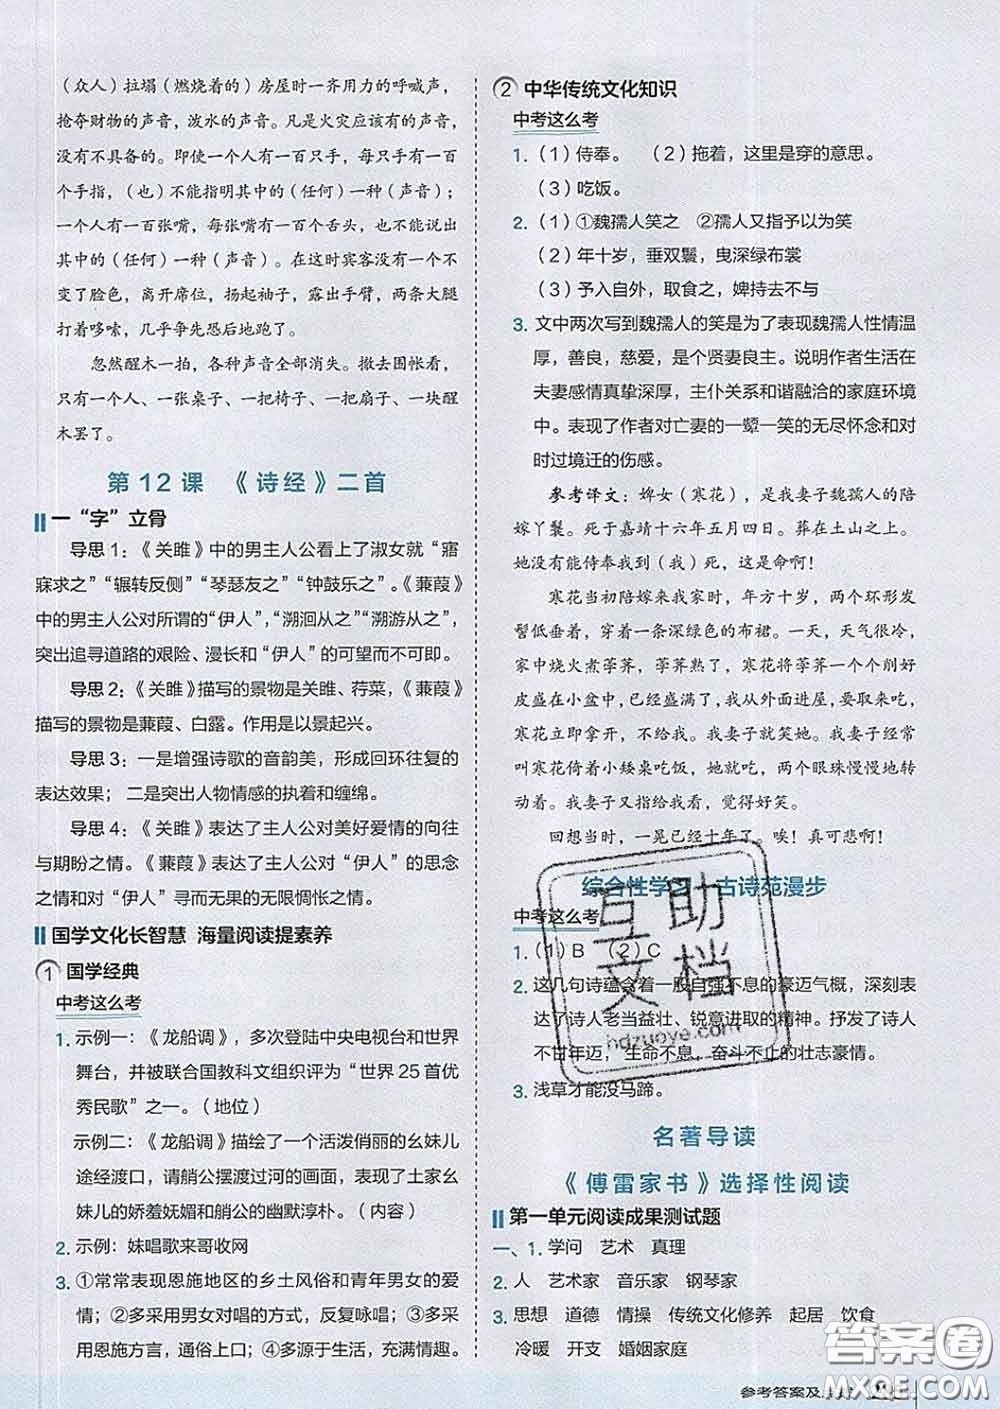 (众人)拉塌(燃烧着的)房屋时一齐用力的呼喊声,
抢夺财物的声音,泼水的声音。凡是火灾应该有的声音,
没有不具备的。即使一个人有一百只手,每只手有一百
个手指,(也)不能指明其中的(任何)一种(声音);
一个人有一百张嘴,每张嘴有一百个舌头,也不能说出
其中的(任何)一种(声音)。在这时宾客们没有一个不
变了脸色,离开席位,扬起袖子,露出手臂,两条大腿
打着哆嗦,几乎争先恐后地跑了。
忽然醒木一拍,各种声音全部消失。撤去围帐看,
只有一个人、一张桌子、一把椅子、一把扇子、一块醒
木罢了。
第 12 课 《诗经》二首
一“字”立骨
导思 1:《关雎》中的男主人公看上了淑女就“寤
寐求之”“辗转反侧”“琴瑟友之”“钟鼓乐之”。《蒹葭》
中的男主人公对所谓的“伊人”,“溯洄从之”“溯游从之”,
突出追寻道路的艰险、漫长和“伊人”的可望而不可即。
导思 2:《关雎》描写的景物是关雎、荇菜,《蒹葭》
描写的景物是蒹葭、白露。作用是以景起兴。
导思 3:一是增强诗歌的音韵美,形成回环往复的
表达效果;二是突出人物情感的执着和缠绵。
导思 4:《关雎》表达了主人公对美好爱情的向往
与期盼之情。《蒹葭》表达了主人公对“伊人”的思念
之情和对“伊人”寻而无果的无限惆怅之情。
国学文化长智慧 海量阅读提素养
1 国学经典
中考这么考
1. 示例一:《龙船调》,多次登陆中央电视台和世界
舞台,并被联合国教科文组织评为“世界 25 首优
秀民歌”之一。(地位)
示例二:《龙船调》描绘了一个活泼俏丽的幺妹儿
途经渡口,请艄公摆渡过河的画面,表现了土家幺
妹儿的娇羞妩媚和艄公的幽默淳朴。(内容)
2. 示例:妹唱歌来哥收网
3. ①常常表现恩施地区的乡土风俗和青年男女的爱
情;②多采用男女对唱的方式,反复咏唱;③多采
用恩施方言,通俗上口;④多源于生活,充满情趣。
2 中华传统文化知识
中考这么考
1.(1)侍奉。 (2)拖着,这里是穿的意思。
(3)吃饭。
2.(1)①魏孺人笑之 ②孺人又指予以为笑
(2)年十岁,垂双鬟,曳深绿布裳
(3)予入自外,取食之,婢持去不与
3. 文中两次写到魏孺人的笑是为了表现魏孺人性情温
厚,善良,慈爱,是个贤妻良主。说明作者生活在
夫妻感情真挚深厚,主仆关系和谐融洽的家庭环境
中。表现了作者对亡妻的一颦一笑的无尽怀念和对
时过境迁的伤感。
参考译文:婢女(寒花),是我妻子魏孺人的陪
嫁丫鬟。死于嘉靖十六年五月四日。葬在土山之上。
她没有能侍奉我到(我)死,这是命啊!
寒花当初陪嫁来我家时,年方十岁,两个环形发
髻低垂着,穿着一条深绿色的布裙。一天,天气很冷,
家中烧火煮荸荠,荸荠熟了,寒花将荸荠一个个削好
皮盛在小盆中,已经盛满了。我从外面进屋,要拿来吃,
寒花立即拿开,不给我。我妻子就笑她。我妻子经常
叫寒花倚着小矮桌吃饭,她就吃,两个眼珠慢慢地转
动着。我妻子又指给我看,觉得好笑。
回想当时,一晃已经十年了。唉!真可悲啊!
综合性学习 古诗苑漫步
中考这么考
1.(1)B (2)C
2. 这几句诗蕴含着一股自强不息的豪迈气概,深刻表
达了诗人老当益壮、锐意进取的精神。抒发了诗人
不甘年迈,生命不息,奋斗不止的壮志豪情。
3. 浅草才能没马蹄。
互助
文档
hdzuoye.com
名著导读
《傅雷家书》选择性阅读
第一单元阅读成果测试题
一、1. 学问 艺术 真理
2. 人 艺术家 音乐家 钢琴家
3. 思想 道德 情操 传统文化修养 起居 饮食
冷暖 开支 婚姻家庭
参考答案及
答案圈
MXQE.COM